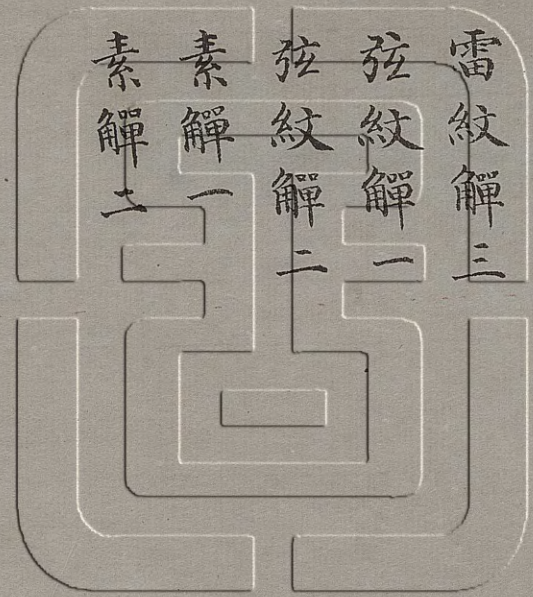 雷紋觶三
弦紋觶一
弦紋觶二
素觶一
素觶二